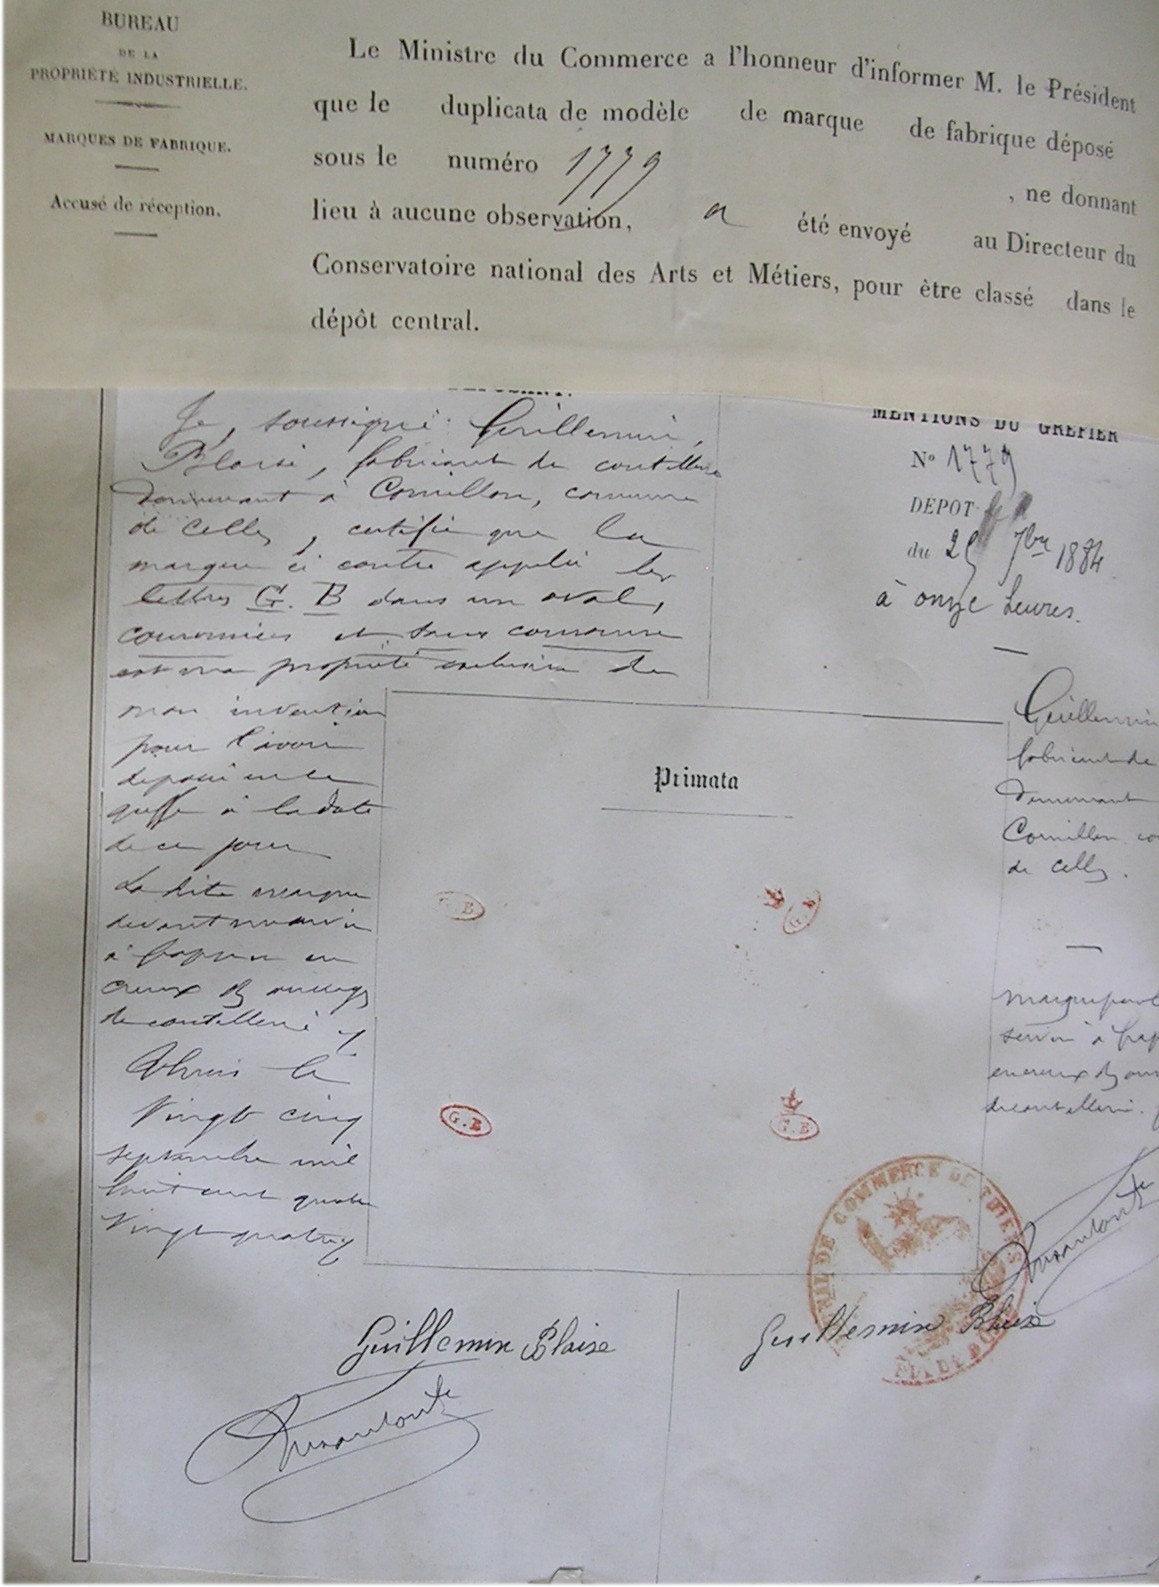 BUREAU
DE LA
PROPRIÉTÉ INDUSTRIELLE.
MARQUES DE FABRIQUE.
Accusé de réception.
Le Ministre du Commerce a l'honneur d'informer M. le Président
que le duplicata de modèle de marque de fabrique déposé
sous le numéro 1779 , ne donnant
lieu à aucune observation, a été envoyé au Directeur du
Conservatoire national des Arts et Métiers, pour être classé dans le
dépôt central.
Je, soussigné Guillemin,
Blaise, fabricant de coutellerie
demeurant à Cornillon, commune
de Celles, certifie que la
marque ci contre appelée les
lettres G. B dans un ovale,
couronnées et sans couronne
est ma propriété exclusive de
mon invention
pour l'avoir
déposé en ce
greffe à la date
de ce jour
La dite marque
devant servir
à frapper en
creux des ouvrages
de coutellerie
Thiers le
Vingt cinq
septembre mil
huit cent quatre
Vingt quatre
MENTIONS DU GREFIER
N° 1779
DÉPOT
du 25 7bre 1884
à onze heures.
Guillemin
fabricant de
demeurant
Cornillon co
de Celles.
marque pour
servir à frap
en creux des ouv
de coutellerie.
Primata
G. B
G. B
G. B
G. B
DE COMMERCE DE THIERS
Guillemin Blaise
Guillemin Blaise